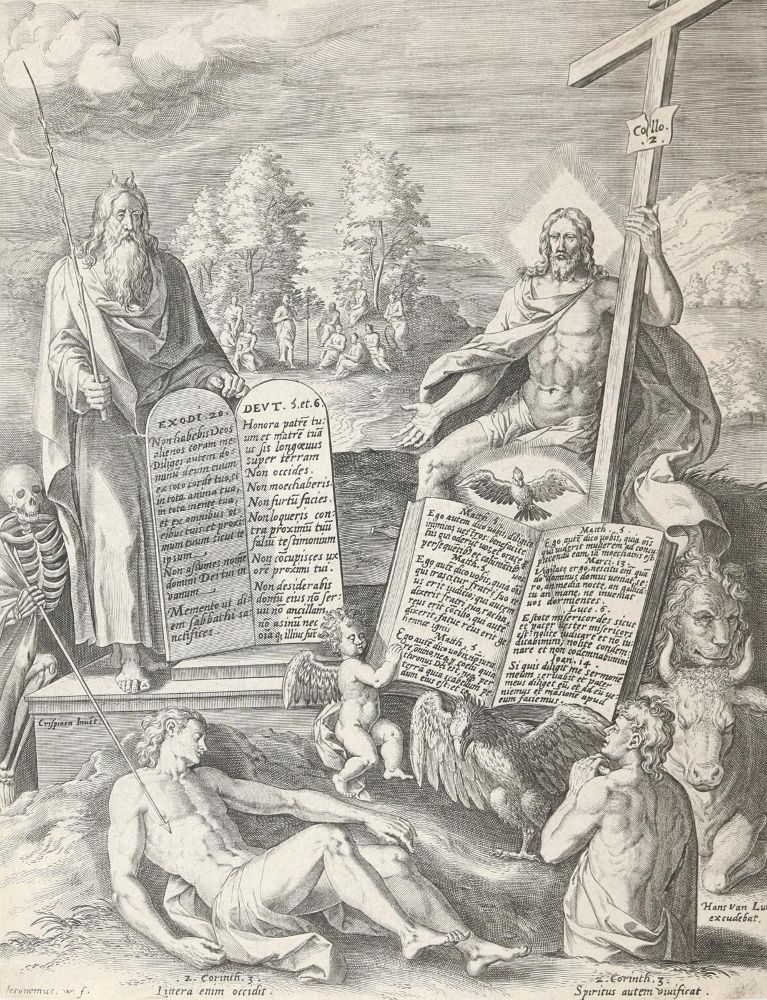 Collo.
.2.
EXODI. 20.
Non habebis Deos
alienos coram me.
Diliges autem do-
minū deum tuum
ex toto corde tuo, et
in tota anima tua,
in tota mente tua,
et ex omnibus vi-
ribus tuis: et proxi-
mum tuum sicut te
ipsum.
Non assumes nomē
domini Dei tui in
vanum.
Memento ut di-
em sabbathi sa-
nctifices.
DEVT. 5. et. 6.
Honora patrē tu-
um et matrē tuā
ut sis longœuus
super terram
Non occides.
Non moechaberis.
Non furtū facies.
Non loqueris con-
tra proximū tuū
falsū testimonium
Nō cōcupisces ux
orē proximi tui.
Non desiderabis
domū eius nō ser-
uū nō ancillam,
nō asinū nec
oīa q; illius sūt
Matth. 5.
Ego autem dico vobis, diligite
inimicos vestros, benefacite
his qui oderūt vos, et orate
persequētib et calumniātib
vos.
Matth. 5.
Ego autē dico vobis, quia oīs
qui irascitur fratri suo re-
us erit iudicio, qui autem
dixerit fratri suo racha,
reus erit cōcilio, qui autē
dixerit, fatue reus erit ge-
hennæ ignis.
Matth. 5.
Ego autē dico vobis nō iurare
omnino, neq; per celū, quia
thronus dei est, neq; per
terrā quia scabellum pe-
dum eius est: et c.
Matth. 5.
Ego autē dico vobis, quia oīs
qui viderit mulierem ad concu-
piscendā eam, iā moechatus est
Marci. 13.
Vigilate ergo, nescitis enī quā-
do dominus domus veniat, se-
ro, an media nocte, an gallicā-
tu an mane, ne inveniat
vos dormientes.
Luce. 6.
Estote misericordes sicut
et pater vester misericors
est: nolite iudicare et nō iu-
dicabimini, nolite condem-
nare et non condemnabimini
Ioan. 14.
Si quis diligit me sermonē
meum servabit et pater
meus diliget eū, et ad eū ve-
niemus et māsionē apud
eum faciemus.
Crispiaen Inuēt.
Hans van Lu
excudebat.
2. Corinth. 3.
Littera enim occidit.
2. Corinth. 3.
Spiritus autem viuificat.
Ieronemus. w. f.